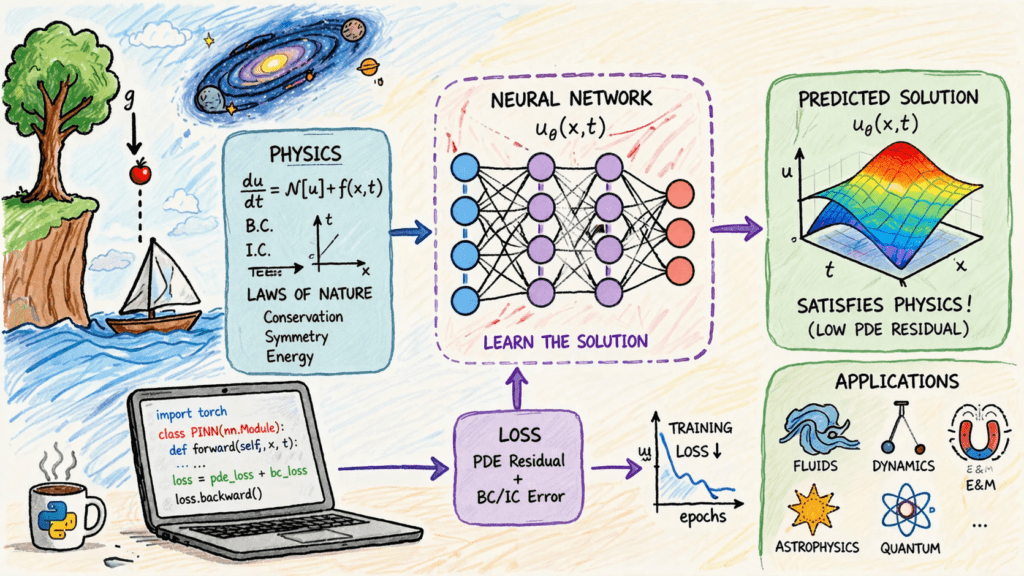 g
PHYSICS
du/dt = N[u] + f(x,t)
B.C.
I.C.
t
x
LAWS OF NATURE
Conservation
Symmetry
Energy
NEURAL NETWORK
u_θ(x,t)
LEARN THE SOLUTION
PREDICTED SOLUTION
u_θ(x,t)
u
t
x
SATISFIES PHYSICS!
(LOW PDE RESIDUAL)
import torch
class PINN(nn.Module):
def forward(self, x, t):
... ...
loss = pde_loss + bc_loss
loss.backward()
LOSS
PDE Residual
+
BC/IC Error
TRAINING
LOSS ↓
epochs
APPLICATIONS
FLUIDS
DYNAMICS
E & M
E&M
ASTROPHYSICS
QUANTUM
...